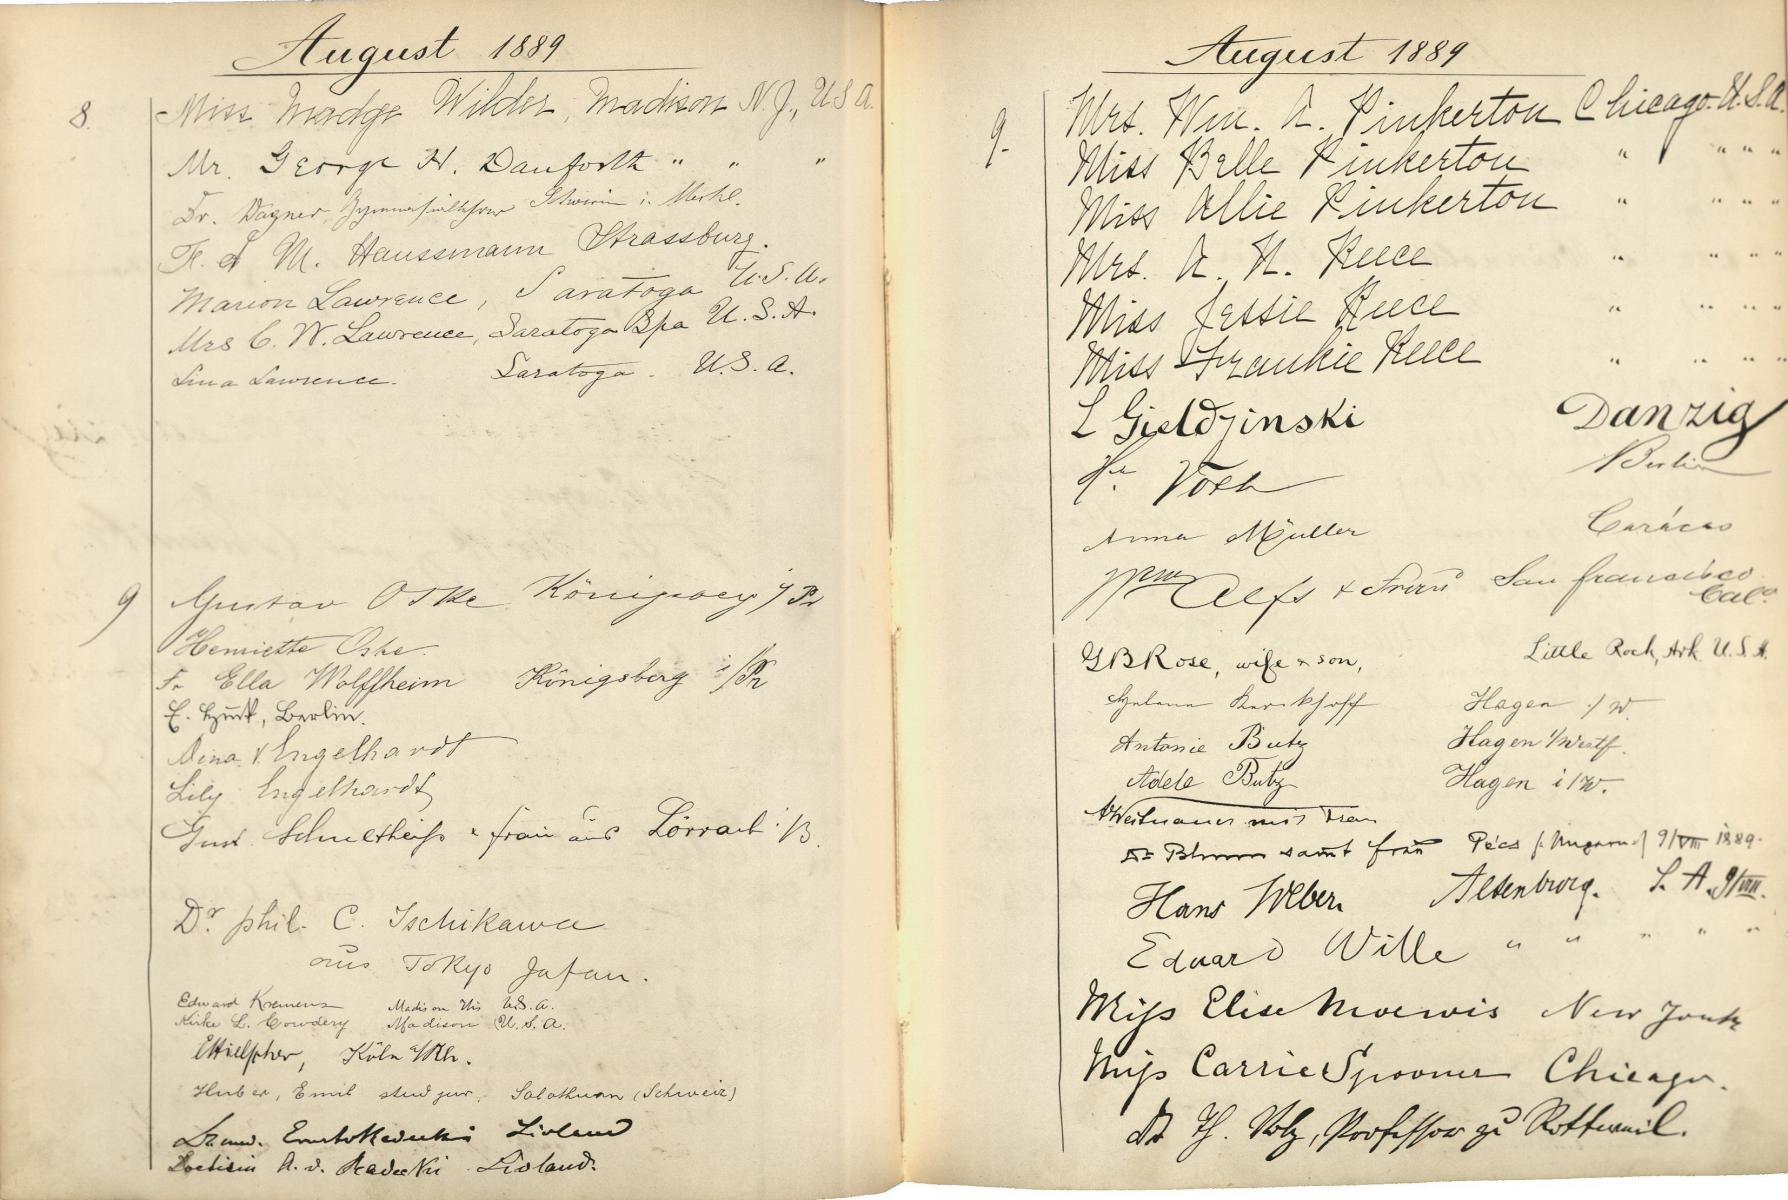 August 1889
8. Miss Madge Wilder, Madison N.J., U S A.
Mr. George H. Danforth " " "
Dr. Wagner, Schwerin i. Meckl.
M. Haussmann Strassburg.
Marion Lawrence, Saratoga U.S.A.
Mrs C. W. Lawrence, Saratoga Spa U.S.A.
Lina Lawrence. Saratoga. U.S.A.
9 Gustav Oske Königsberg i/Pr
Henriette Oske.
Fr. Ella Wolffheim Königsberg i/Pr
Berlin.
Engelhardt
Lily Engelhardt
Gust. Schultheiss & frau aus Lörrach i/B.
Dr phil. C. Ischikawa
aus Tokyo Japan.
Edward Kremers Madison Wis U.S.A.
Kirke L. Cowdery Madison U.S.A.
Köln a/Rh.
Huber, Emil stud jur. Solothurn (Schweiz)
Livland
A. v. Radecki Livland.
August 1889
9. Mrs. Wm. A. Pinkerton Chicago. U.S.A.
Miss Belle Pinkerton " " " "
Miss Allie Pinkerton " " " "
Mrs. A. N. Reece " " " "
Miss Jessie Reece " " " "
Miss Frankie Reece " " " "
L Gieldzinski Danzig
Berlin
Anna Müller Carácas
Wm Alfs & Frau San francisco
Cala.
G B Rose, wife & son, Little Rock, Ark. U.S.A.
Helene Berckhoff Hagen i/W.
Antonie Butz Hagen i/Westf.
Adele Butz Hagen i/W.
mit Frau
Dr samt frau Pécs (Ungarn) 9/VIII 1889.
Hans Weber Altenburg. S. A. 9/VIII.
Eduard Wille " " " " "
Miss Elise Moewis New York
Miss Carrie Spooner Chicago.
Dr Th. Volz, Professor zu Rottweil.